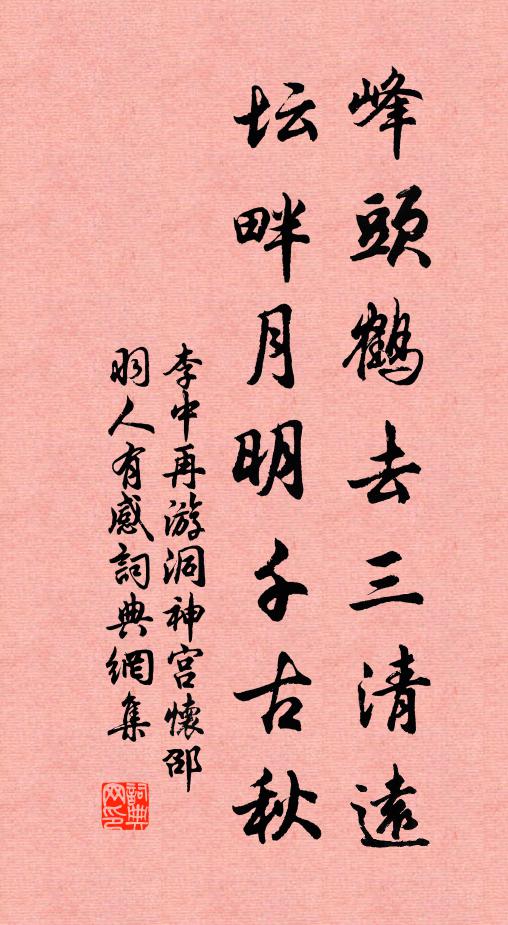 峰頭鶴去三清遠
坛畔月明千古秋
李中再游洞神宮懷邵
羽人有感詞典網集
詞典网印